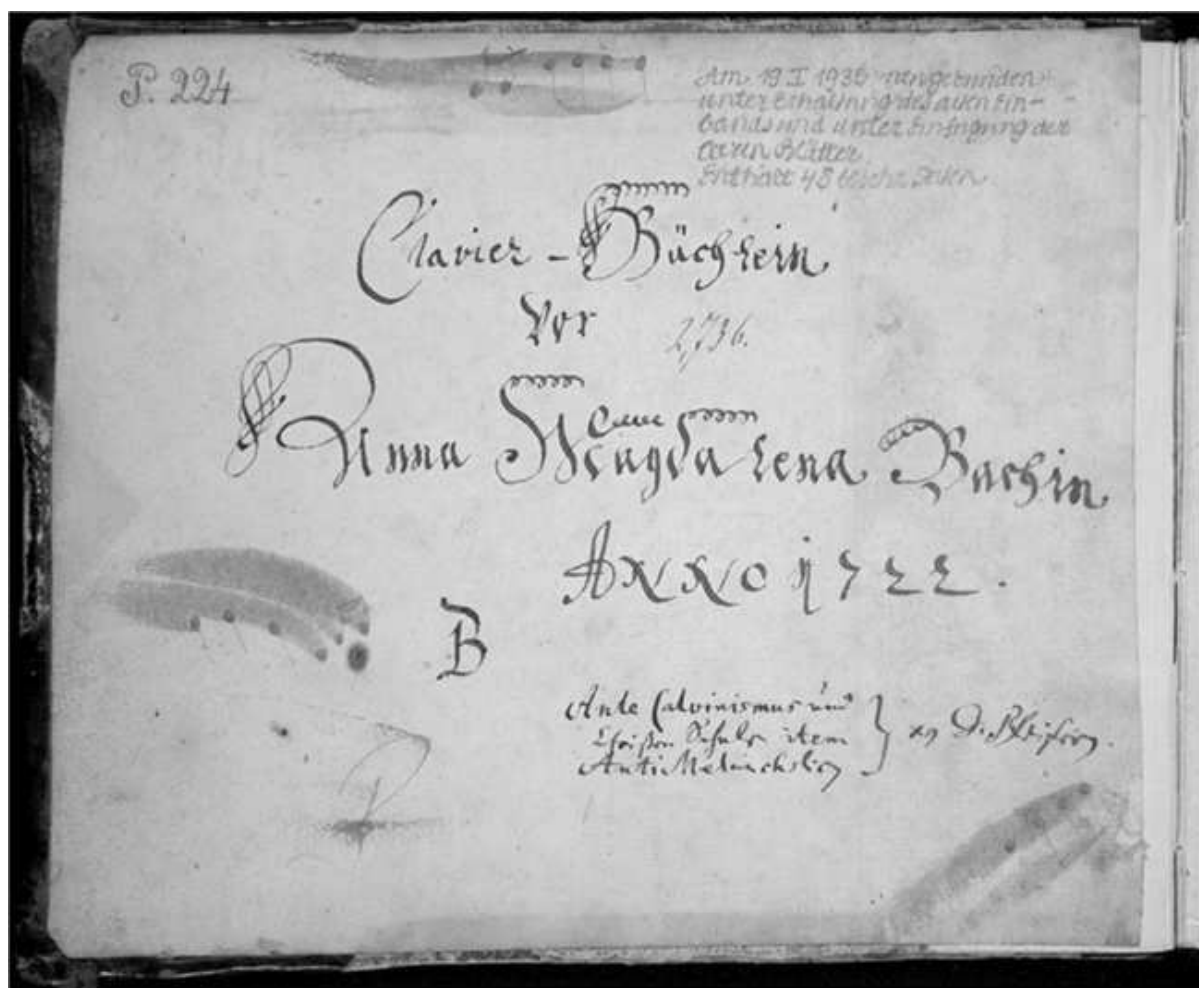 P. 224
Am 19 I 1936 neu gebunden
unter Erhaltung des alten Ein-
bands und unter Einfügung der
leeren Blätter
Enthält 48 Seiten
Clavier-Büchlein
vor
2,736.
Anna Magdalena Bachin
ANNO 1722.
B
Ante Calvinismus und
Christen Schule item
Anti Melancholicus
D. Pfeifern.